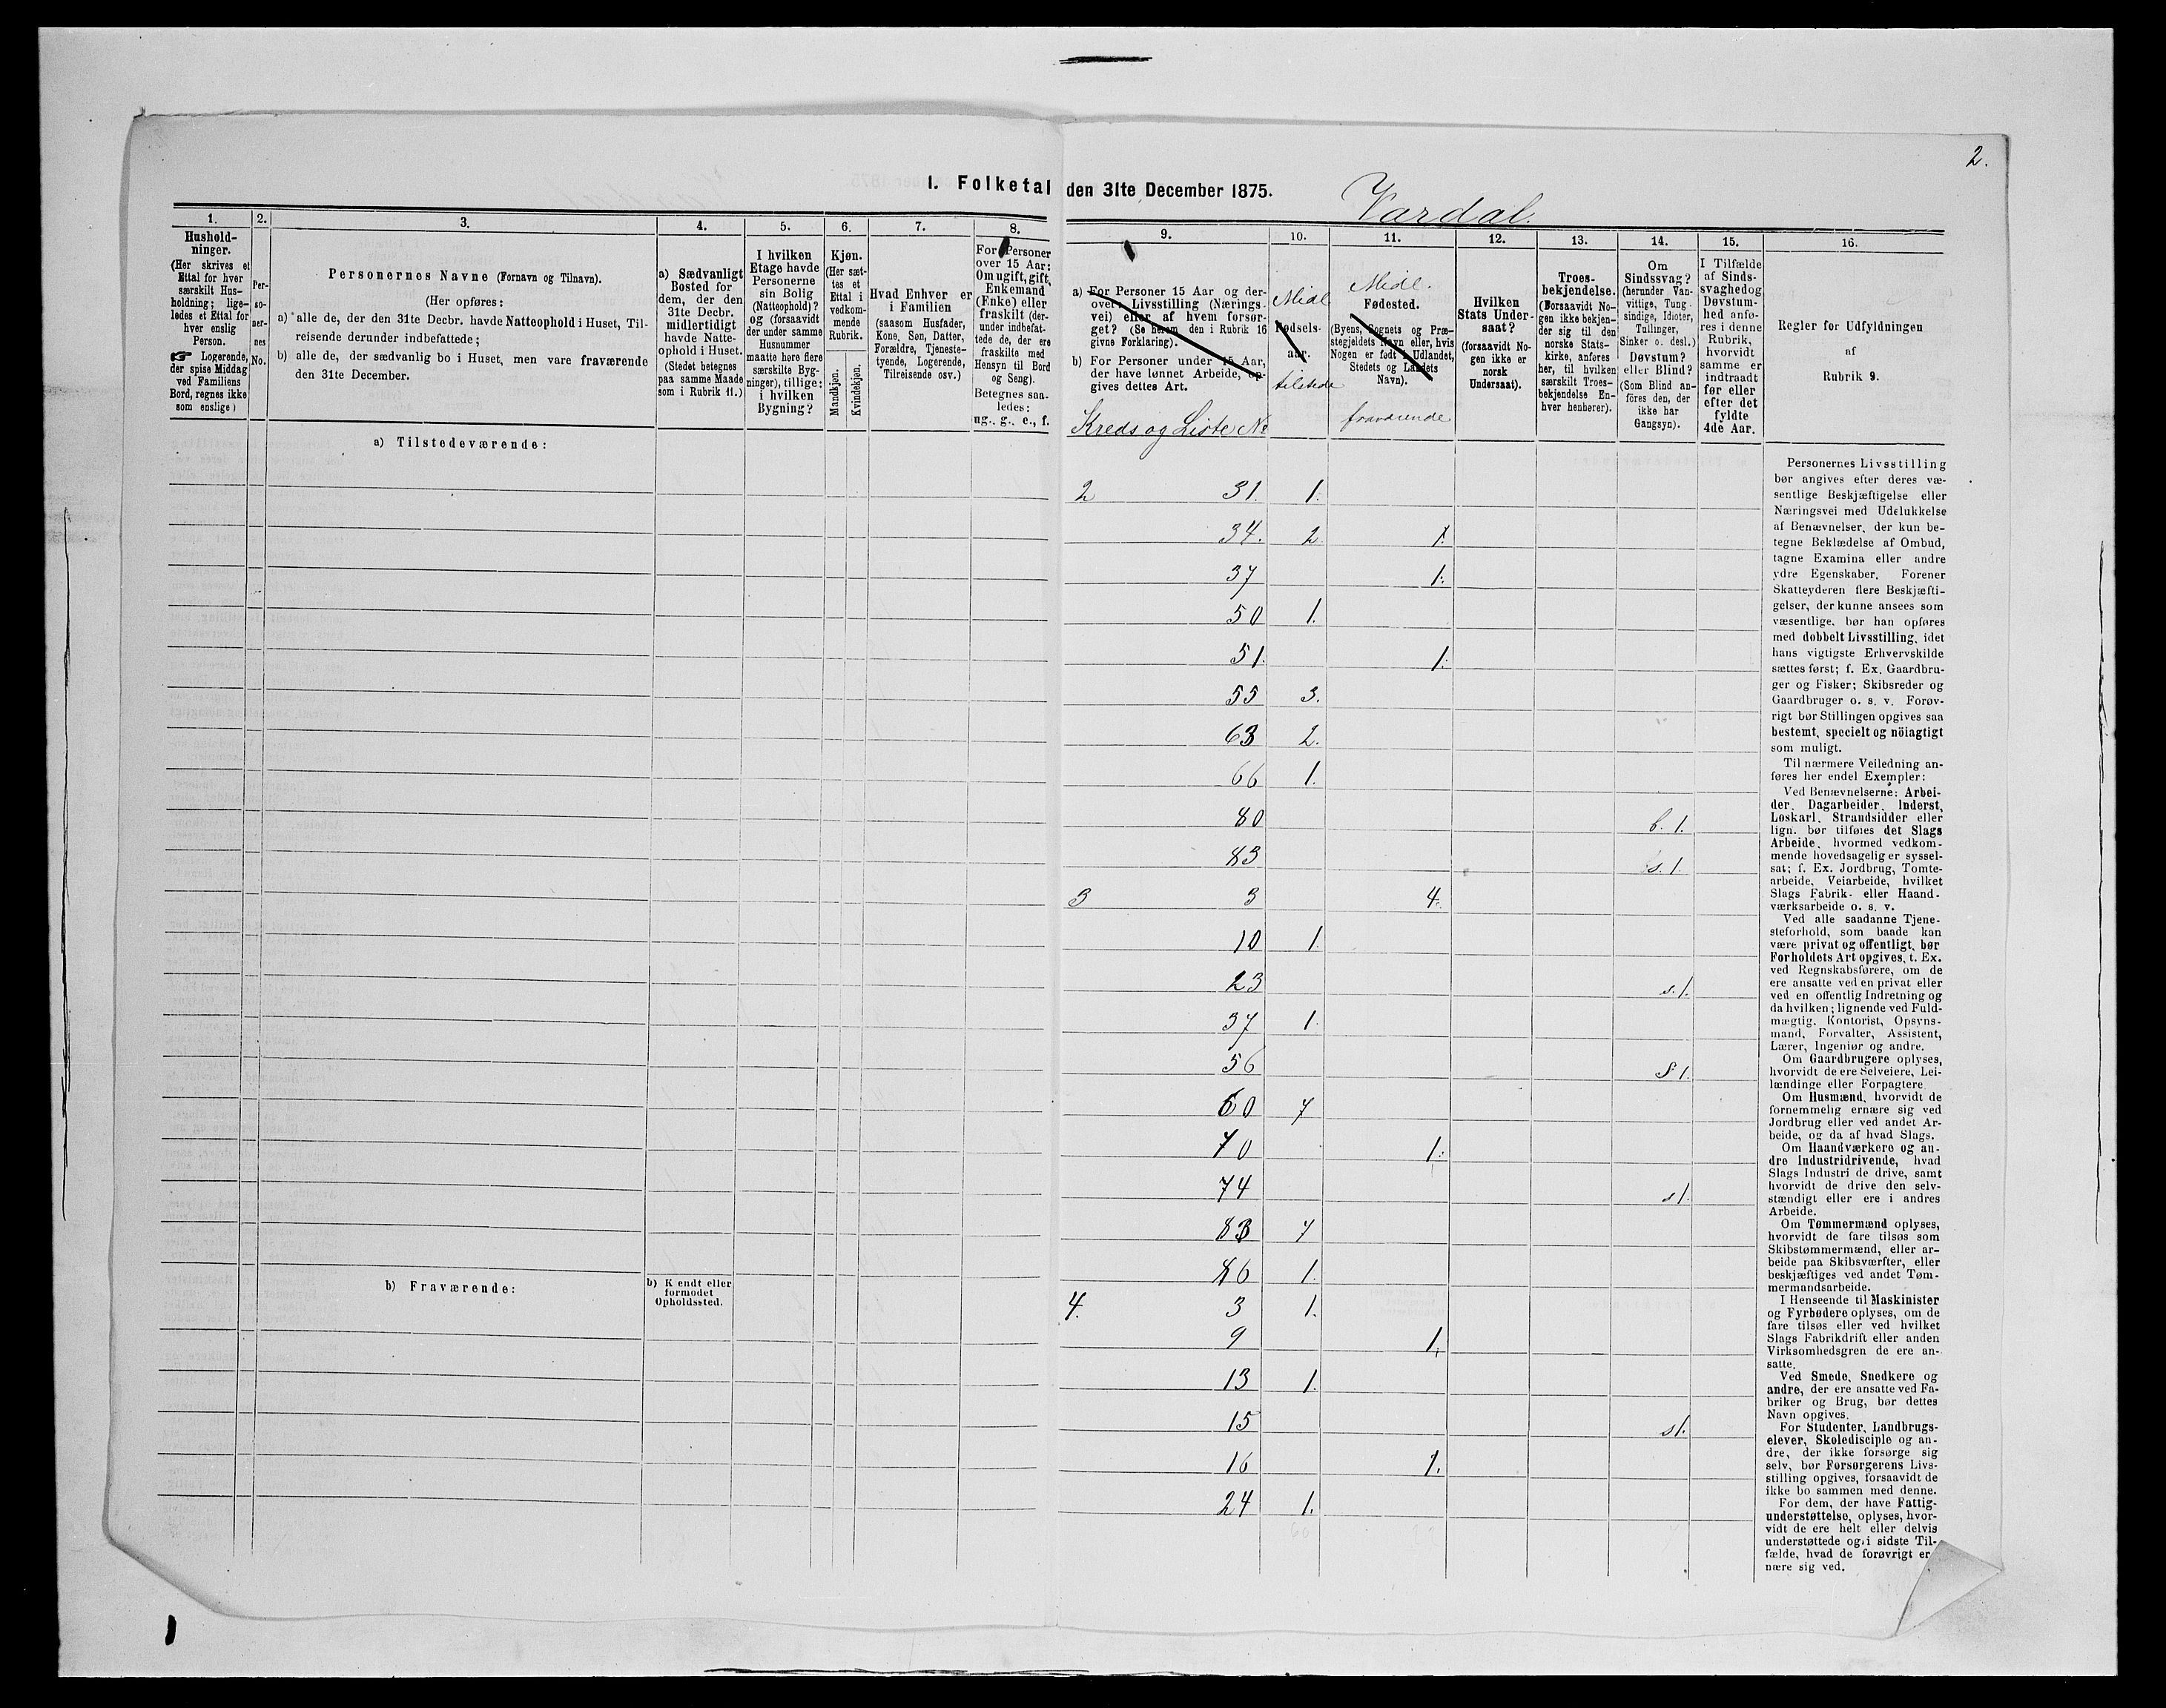 2.
I. Folketal den 31te December 1875.
Vardal.
1.
Hushold-
ninger.
(Her skrives et
Ettal for hver
særskilt Hus-
holdning; lige-
ledes et Ettal for
hver enslig
Person.
☛ Logerende,
der spise Middag
ved Familiens
Bord, regnes ikke
som enslige)
2.
Per-
so-
ner-
nes
No.
3.
Personernes Navne (Fornavn og Tilnavn).
(Her opføres:
a) alle de, der den 31te Decbr. havde Natteophold i Huset, Til-
reisende derunder indbefattede;
b) alle de, der sædvanlig bo i Huset, men vare fraværende
den 31te December.
4.
a) Sædvanligt
Bosted for
dem, der den
31te Decbr.
midlertidigt
havde Natte-
ophold i Huset.
(Stedet betegnes
paa samme Maade
som i Rubrik 11.)
5.
I hvilken
Etage havde
Personerne
sin Bolig
(Natteophold)?
og (forsaavidt
der under samme
Husnummer
maatte høre flere
særskilte Byg-
ninger), tillige:
i hvilken
Bygning?
6.
Kjøn.
(Her sæt-
tes et
Ettal i
vedkom-
mende
Rubrik.
Mandkjøn.
Kvindekjøn.
7.
Hvad Enhver er
i Familien
(saasom Husfader,
Kone, Søn, Datter,
Forældre, Tjeneste-
tyende, Logerende,
Tilreisende osv.)
8.
For Personer
over 15 Aar:
Om ugift, gift,
Enkemand
(Enke) eller
fraskilt (der-
under indbefat-
tede de, der ere
fraskilte med
Hensyn til Bord
og Seng).
Betegnes saa-
ledes:
ug., g., e., f.
9.
a) For Personer 15 Aar og der-
over: Livsstilling (Nærings-
vei) eller af hvem forsør-
get? (Se herom den i Rubrik 16
givne Forklaring).
b) For Personer under 15 Aar,
der have lønnet Arbeide, op-
gives dettes Art.
Kreds og Liste No
10.
Midl
Fødsels-
aar.
tilstede
11.
Midl.
Fødested.
(Byens, Sognets og Præ-
stegjeldets Navn eller, hvis
Nogen er født i Udlandet,
Stedets og Landets
Navn).
fraværende
12.
Hvilken
Stats Under-
saat?
(forsaavidt No-
gen ikke er
norsk
Undersaat).
13.
Troes-
bekjendelse.
(Forsaavidt No-
gen ikke bekjen-
der sig til den
norske Stats-
kirke, anføres
her, til hvilken
særskilt Troes-
bekjendelse En-
hver henhører).
14.
Om
Sindssvag?
(herunder Van-
vittige, Tung-
sindige, Idioter,
Tullinger,
Sinker o. desl.)
Døvstum?
eller Blind?
(Som Blind an-
føres den, der
ikke har
Gangsyn).
15.
I Tilfælde
af Sinds-
svaghed og
Døvstum-
hed anfø-
res i denne
Rubrik,
hvorvidt
samme er
indtraadt
før eller
efter det
fyldte
4de Aar.
16.
Regler for Udfyldningen
af
Rubrik 9.
a) Tilstedeværende:
2 31. 1.
34. 2. 1.
37 1.
50 1.
51. 1.
55 3.
63 2.
66 1.
80 b. 1.
83 s. 1.
3 3 4.
10 1.
23 s. 1.
37 1.
56 S 1.
60 7
70 1.
74 s 1.
83 7
86 1.
b) Fraværende:
b) Kjendt eller
formodet
Opholdssted.
4. 3 1.
9 1.
13 1.
15 s 1.
16 1.
24 1.
60
Personernes Livsstilling
bør angives efter deres væ-
sentlige Beskjæftigelse eller
Næringsvei med Udelukkelse
af Benævnelser, der kun be-
tegne Beklædelse af Ombud,
tagne Examina eller andre
ydre Egenskaber. Forener
Skatteyderen flere Beskjæfti-
gelser, der kunne ansees som
væsentlige, bør han opføres
med dobbelt Livsstilling, idet
hans vigtigste Erhvervskilde
sættes først; f. Ex. Gaardbru-
ger og Fisker; Skibsreder og
Gaardbruger o. s. v. Forøv-
rigt bør Stillingen opgives saa
bestemt, specielt og nöiagtigt
som muligt.
Til nærmere Veiledning an-
føres her endel Exempler:
Ved Benævnelserne: Arbei-
der, Dagarbeider, Inderst,
Løskarl, Strandsidder eller
lign. bør tilføies det Slags
Arbeide, hvormed vedkom-
mende hovedsagelig er syssel-
sat; f. Ex. Jordbrug, Tomte-
arbeide, Veiarbeide, hvilket
Slags Fabrik- eller Haand-
værksarbeide o. s. v.
Ved alle saadanne Tjene-
steforhold, som baade kan
være privat og offentligt, bør
Forholdets Art opgives, t. Ex.
ved Regnskabsførere, om de
ere ansatte ved en privat eller
ved en offentlig Indretning og
da hvilken; lignende ved Fuld-
mægtig, Kontorist, Opsyns-
mand, Forvalter, Assistent,
Lærer, Ingeniør og andre.
Om Gaardbrugere oplyses,
hvorvidt de ere Selveiere, Lei-
lændinge eller Forpagtere
Om Husmænd, hvorvidt de
fornemmelig ernære sig ved
Jordbrug eller ved andet Ar-
beide, og da af hvad Slags.
Om Haandværkere og an-
dre Industridrivende, hvad
Slags Industri de drive, samt
hvorvidt de drive den selv-
stændigt eller ere i andres
Arbeide.
Om Tømmermænd oplyses,
hvorvidt de fare tilsøs som
Skibstømmermænd, eller ar-
beide paa Skibsværfter, eller
beskjæftiges ved andet Tøm-
mermandsarbeide.
I Henseende til Maskinister
og Fyrbødere oplyses, om de
fare tilsøs eller ved hvilket
Slags Fabrikdrift eller anden
Virksomhedsgren de ere an-
satte.
Ved Smede, Snedkere og
andre, der ere ansatte ved Fa-
briker og Brug, bør dettes
Navn opgives.
For Studenter, Landbrugs-
elever, Skoledisciple og an-
dre, der ikke forsørge sig
selv, bør Forsørgerens Livs-
stilling opgives, forsaavidt de
ikke bo sammen med denne.
For dem, der have Fattig-
understøttelse, oplyses, hvor-
vidt de ere helt eller delvis
understøttede og i sidste Til-
fælde, hvad de forøvrigt er-
nære sig ved.